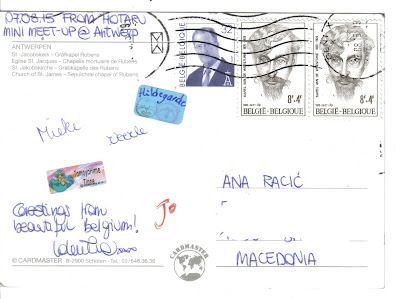 07.08.15 FROM HOTARU
MINI MEET-UP @ Antwerp
ANTWERPEN
St.-Jacobskerk - Grafkapel Rubens
Eglise St. Jacques - Chapelle mortuaire de Rubens
St. Jakobskirche - Grabkapelle des Rubens
Church of St. James - Sepulchral chapel of Rubens
BELGIE-BELGIQUE
A
8F+4F
BELGIË-BELGIQUE
8F+4F
BELGIË-BELGIQUE
Hildegarde
Mieke
Greetings from
beautiful Belgium!
Jo
ANA RACIĆ
MACEDONIA
CARDMASTER
© CARDMASTER B-2900 Schoten - Tel. 03/646.36.36